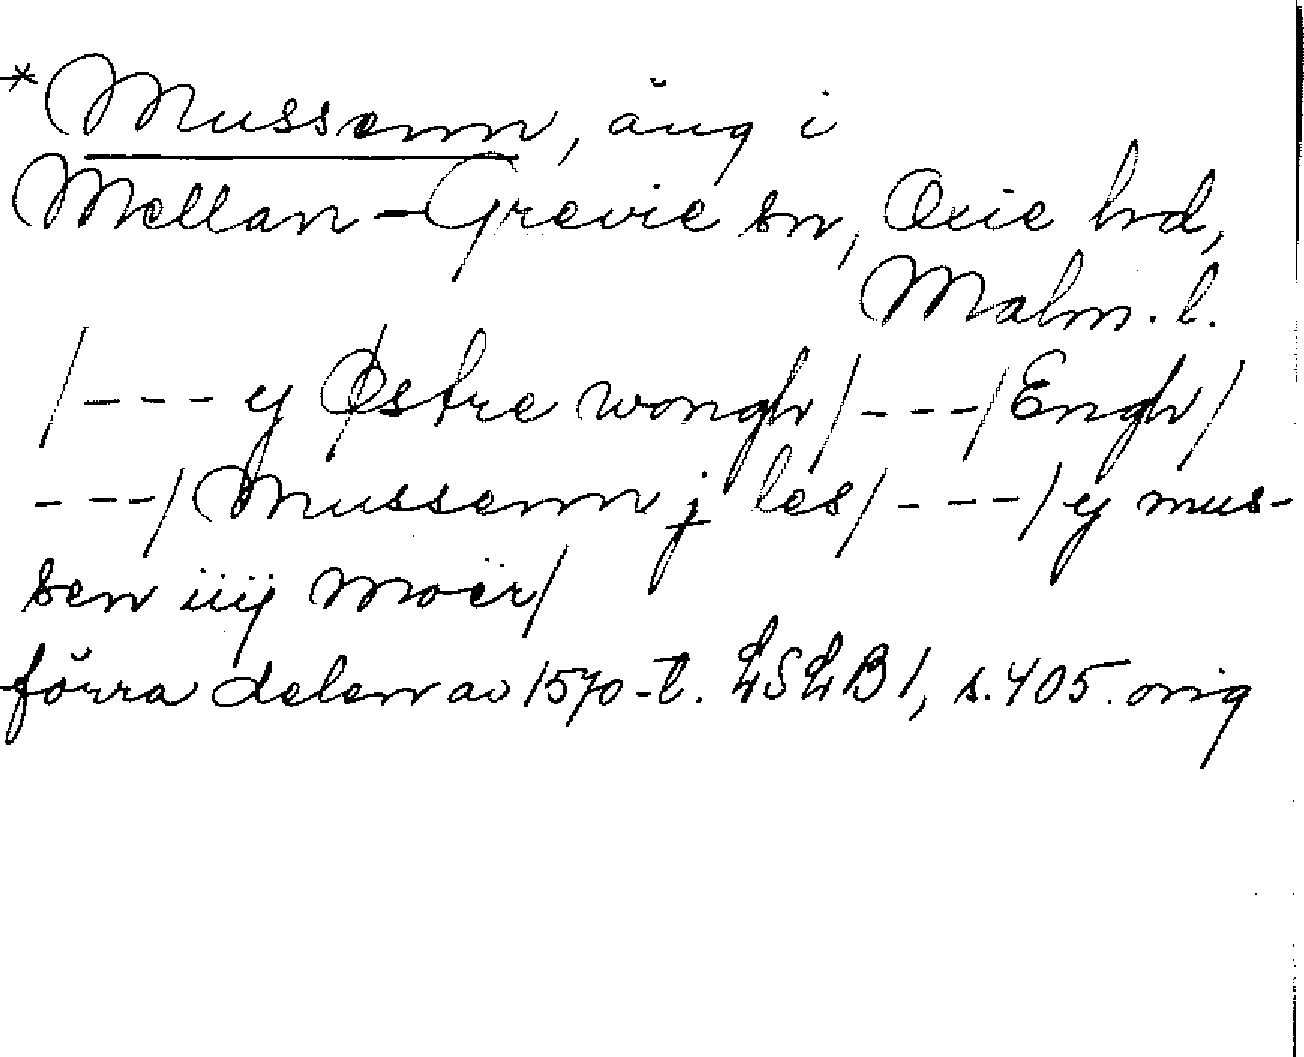 * Mussenn, äng i
Mellan-Grevie sn, Oxie hd,
Malm. l.
/--- ij Østre wongh/---/Engh/
---/Mussenn j les/---/ij mus-
sen iiij moër/
förra delen av 1570-t. LSLB 1, s. 405. orig